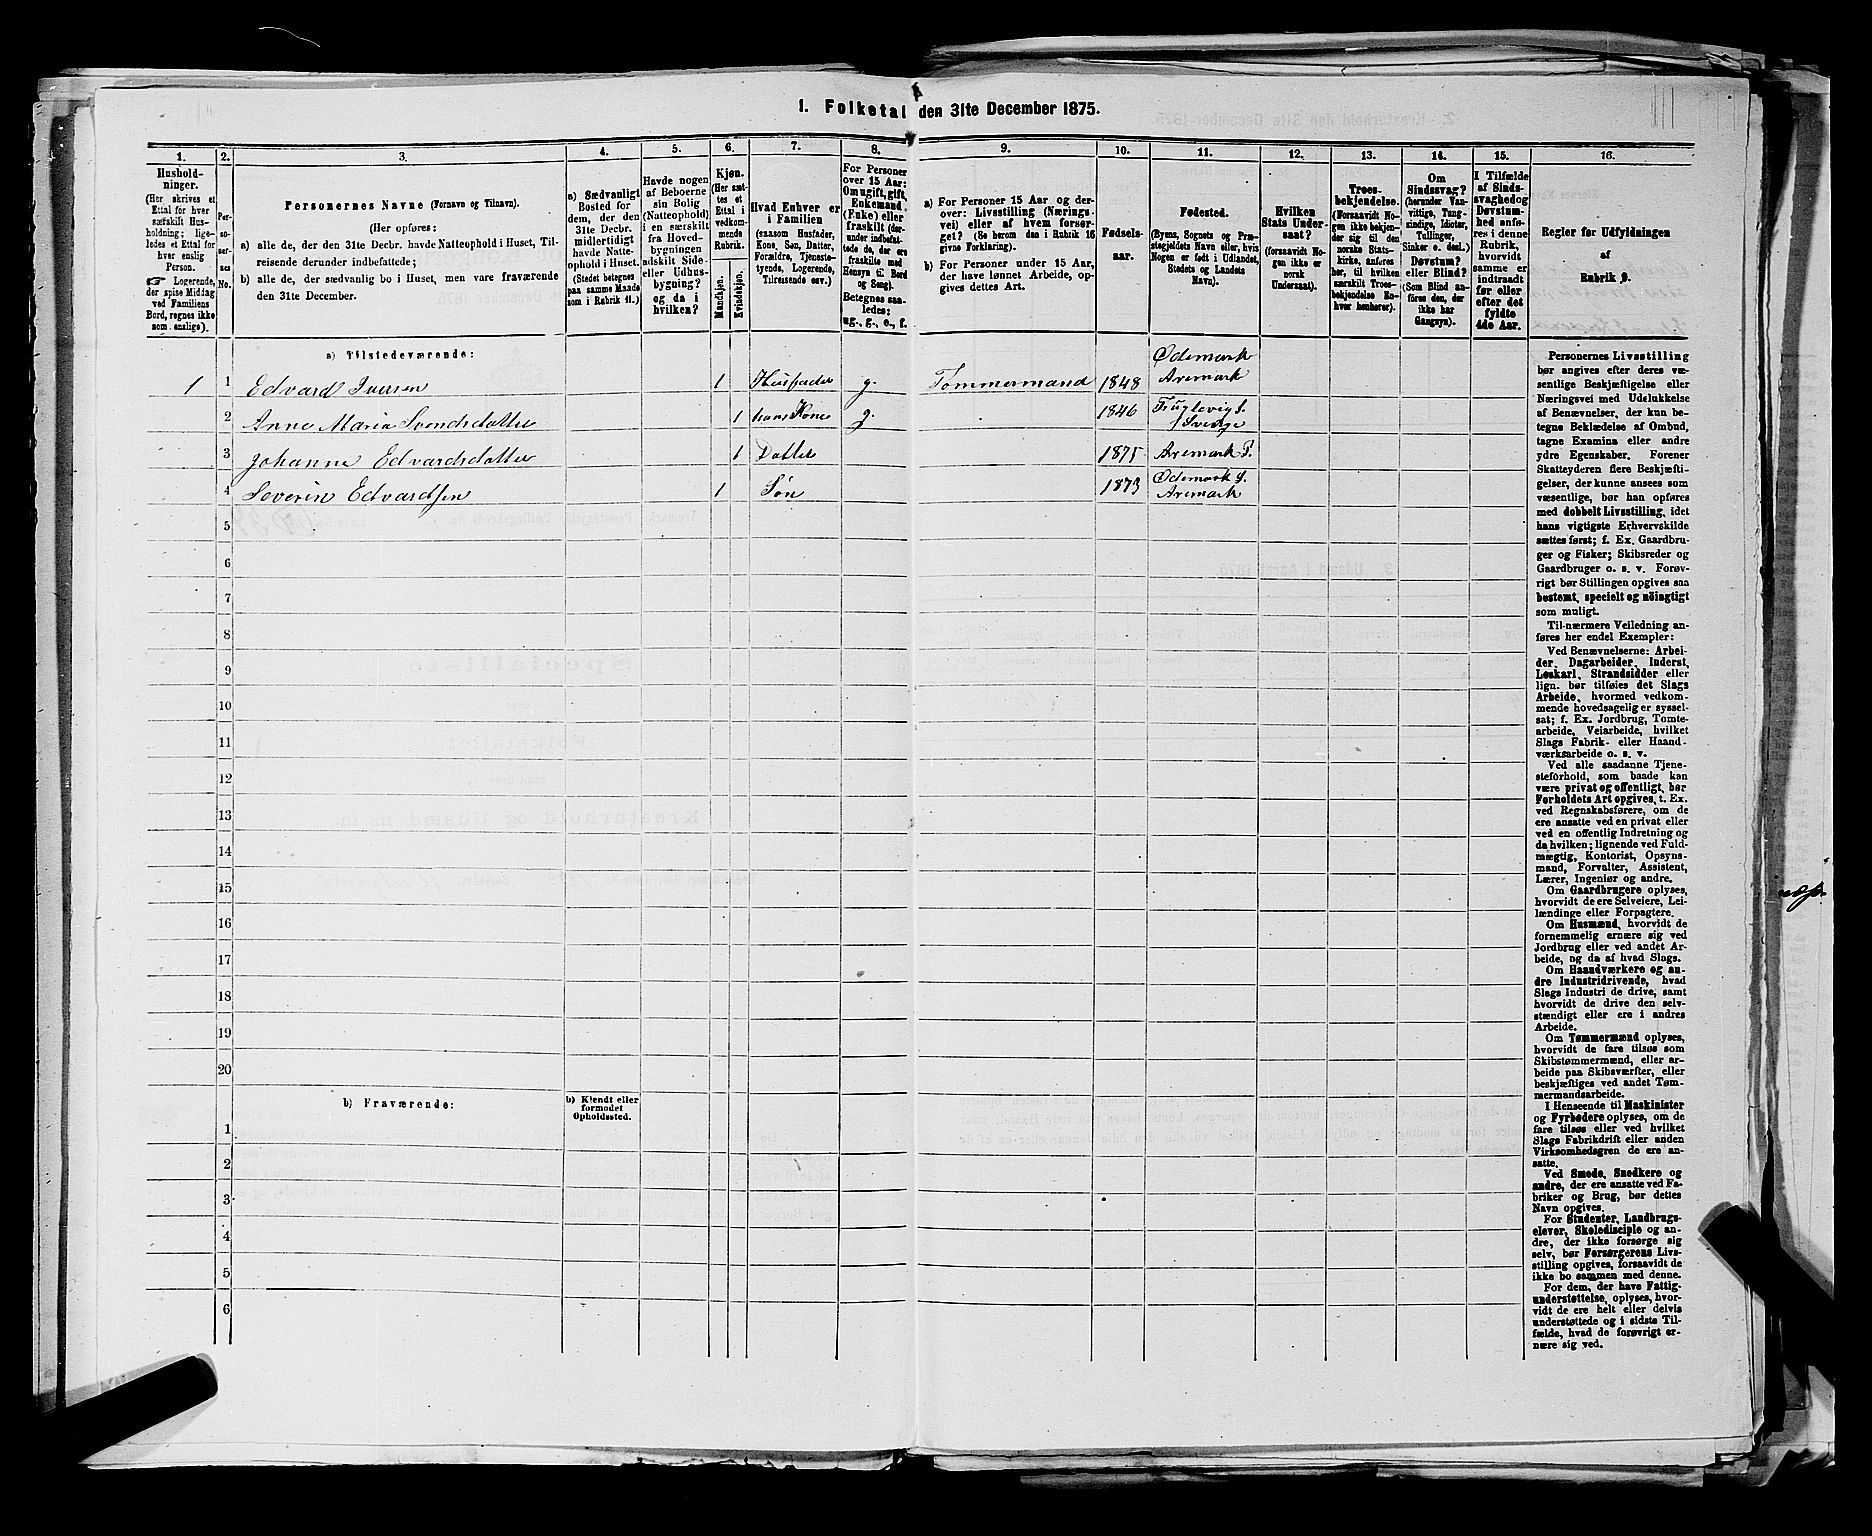 1. Folketal den 31te December 1875.
1. 2. 3. 4. 5. 6. 7. 8. 9. 10. 11. 12. 13. 14. 15. 16.
Hushold-
ninger.
(Her skrives et
Ettal for hver
særskilt Hus-
holdning; lige-
ledes et Ettal for
hver enslig
Person.
☞ Logerende,
der spise Middag
ved Familiens
Bord, regnes ikke
som enslige).
Per-
so-
ner-
nes
No.
Personernes Navne (Fornavn og Tilnavn).
(Her opføres:
a) alle de, der den 31te Decbr. havde Natteophold i Huset, Til-
reisende derunder indbefattede;
b) alle de, der sædvanlig bo i Huset, men vare fraværende
den 31te December.
a) Sædvanligt
Bosted for
dem, der den
31te Decbr.
midlertidigt
havde Natte-
ophold i Huset.
(Stedet betegnes
paa samme Maade
som i Rubrik 11.)
Havde nogen
af Beboerne
sin Bolig
(Natteophold)
i en særskilt
fra Hoved-
bygningen
adskilt Side-
eller Udhus-
bygning?
og da i
hvilken?
Kjøn.
(Her sæt-
tes et
Ettal i
vedkom-
mende
Rubrik.
Mandkjøn.
Kvindekjøn.
Hvad Enhver er
i Familien
(saasom Husfader,
Kone, Søn, Datter,
Forældre, Tjeneste-
tyende, Logerende,
Tilreisende osv.)
For Personer
over 15 Aar:
Om ugift, gift,
Enkemand
(Enke) eller
fraskilt (der-
under indbefat-
tede de, der ere
fraskilte med
Hensyn til Bord
og Seng).
Betegnes saa-
ledes:
ug., g., e., f.
a) For Personer 15 Aar og der-
over: Livsstilling (Nærings-
vei) eller af hvem forsør-
get? (Se herom den i Rubrik 16
givne Forklaring).
b) For Personer under 15 Aar,
der have lønnet Arbeide, op-
gives dettes Art.
Fødsels-
aar.
Fødested.
(Byens, Sognets og Præ-
stegjeldets Navn eller, hvis
Nogen er født i Udlandet,
Stedets og Landets
Navn).
Hvilken
Stats Under-
saat?
(forsaavidt No-
gen ikke er
norsk
Undersaat).
Troes-
bekjendelse.
(Forsaavidt No-
gen ikke bekjen-
der sig til den
norske Stats-
kirke, anføres
her, til hvilken
særskilt Troes-
bekjendelse En-
hver henhører).
Om
Sindssvag?
(herunder Van-
vittige, Tung-
sindige, Idioter,
Tullinger,
Sinker o. desl.)
Døvstum?
eller Blind?
(Som Blind an-
føres den, der
ikke har
Gangsyn).
I Tilfælde
af Sinds-
svaghed og
Døvstum-
hed anfø-
res i denne
Rubrik,
hvorvidt
samme er
indtraadt
før eller
efter det
fyldte
4de Aar.
Regler for Udfyldningen
af
Rubrik 9.
a) Tilstedeværende:
1 1 Edvard Iversen 1 Husfader g. Tømmermand 1848 Ødemark
Aremark
2 Anne Maria Svendsdatter 1 hans Kone g. 1846
Sverige
3 Johanne Edvardsdatter 1 Datter 1875 Aremark P.
4 Severin Edvardsen 1 Søn 1873 Ødemark S.
Aremark
5
6
7
8
9
10
11
12
13
14
15
16
17
18
19
20
b) Fraværende:
b) Kjendt eller
formodet
Opholdssted.
1
2
3
4
5
6
Personernes Livsstilling
bør angives efter deres væ-
sentlige Beskjæftigelse eller
Næringsvei med Udelukkelse
af Benævnelser, der kun be-
tegne Beklædelse af Ombud,
tagne Examina eller andre
ydre Egenskaber. Forener
Skatteyderen flere Beskjæfti-
gelser, der kunne ansees som
væsentlige, bør han opføres
med dobbelt Livsstilling, idet
hans vigtigste Erhvervskilde
sættes først; f. Ex. Gaardbru-
ger og Fisker; Skibsreder og
Gaardbruger o. s. v. Forøv-
rigt bør Stillingen opgives saa
bestemt, specielt og nöiagtigt
som muligt.
Til nærmere Veiledning an-
føres her endel Exempler:
Ved Benævnelserne: Arbei-
der, Dagarbeider, Inderst,
Løskarl, Strandsidder eller
lign. bør tilføies det Slags
Arbeide, hvormed vedkom-
mende hovedsagelig er syssel-
sat; f. Ex. Jordbrug, Tomte-
arbeide, Veiarbeide, hvilket
Slags Fabrik- eller Haand-
værksarbeide o. s. v.
Ved alle saadanne Tjene-
steforhold, som baade kan
være privat og offentligt, bør
Forholdets Art opgives, t. Ex.
ved Regnskabsførere, om de
ere ansatte ved en privat eller
ved en offentlig Indretning og
da hvilken; lignende ved Fuld-
mægtig, Kontorist, Opsyns-
mand, Forvalter, Assistent,
Lærer, Ingeniør og andre.
Om Gaardbrugere oplyses,
hvorvidt de ere Selveiere, Lei-
lændinge eller Forpagtere.
Om Husmænd, hvorvidt de
fornemmelig ernære sig ved
Jordbrug eller ved andet Ar-
beide, og da af hvad Slags.
Om Haandværkere og an-
dre Industridrivende, hvad
Slags Industri de drive, samt
hvorvidt de drive den selv-
stændigt eller ere i andres
Arbeide.
Om Tømmermænd oplyses,
hvorvidt de fare tilsøs som
Skibstømmermænd, eller ar-
beide paa Skibsværfter, eller
beskjæftiges ved andet Tøm-
mermandsarbeide.
I Henseende til Maskinister
og Fyrbødere oplyses, om de
fare tilsøs eller ved hvilket
Slags Fabrikdrift eller anden
Virksomhedsgren de ere an-
satte.
Ved Smede, Snedkere og
andre, der ere ansatte ved Fa-
briker og Brug, bør dettes
Navn opgives.
For Studenter, Landbrugs-
elever, Skoledisciple og an-
dre, der ikke forsørge sig
selv, bør Forsørgerens Livs-
stilling opgives, forsaavidt de
ikke bo sammen med denne.
For dem, der have Fattig-
understøttelse, oplyses, hvor-
vidt de ere helt eller delvis
understøttede og i sidste Til-
fælde, hvad de forøvrigt er-
nære sig ved.